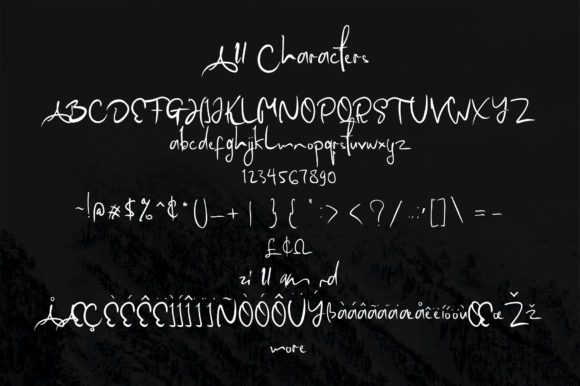 All Characters
ABCDEFGHIJKLMNOPQRSTUVWXYZ
abcdefghijklmnopqrstuvwxyz
1234567890
~!@#$%^¢*()_+|}{":><?/.,;'[]\=-
£¢Ω
zi ll am rd
ÅÆÇÈÉÊËÌÍÎÏÑÒÓÔÙÝßàáâãäåæèêëìíóöùŒœŽž
more